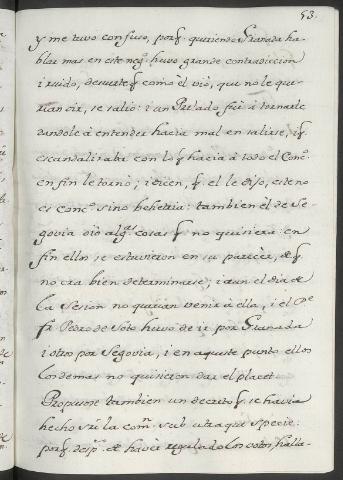 53.
y me tuvo confuso, porq̃. queriendo Granada ha-
blar mas en este neg.º huvo grande contradiccion
i ruido, de suerte q̃. como èl viò, que no le que-
rian oir, se saliò: i un Prelado fuè à tornarle
dandole à entender hacia mal en salirse, i q̃.
escandalizaba con lo q̃ hacia à todo el Conc.º
en fin le tornò; i dicen, q̃. el le dijo, este no
es conc.º sino behetria: tambien el de Se-
govia oiò alg.s cosas q̃ no quisiera: en
fin ellos se estuvieron en su parecèr, de q̃.
no era bien determinarse; i aun el dia de
la Sesion no querian venir à ella, i el P.e
fr. Pedro de Soto huvo de ir por Granada
i otro por Segovia, i en aqueste punto ellos
los demas no quisieron dar el placet.
Propusose tambien un decreto q̃. se havia
hecho sre la com.n sub utraque specie:
porq̃. desp.s de havèr regulado los votos, halla-